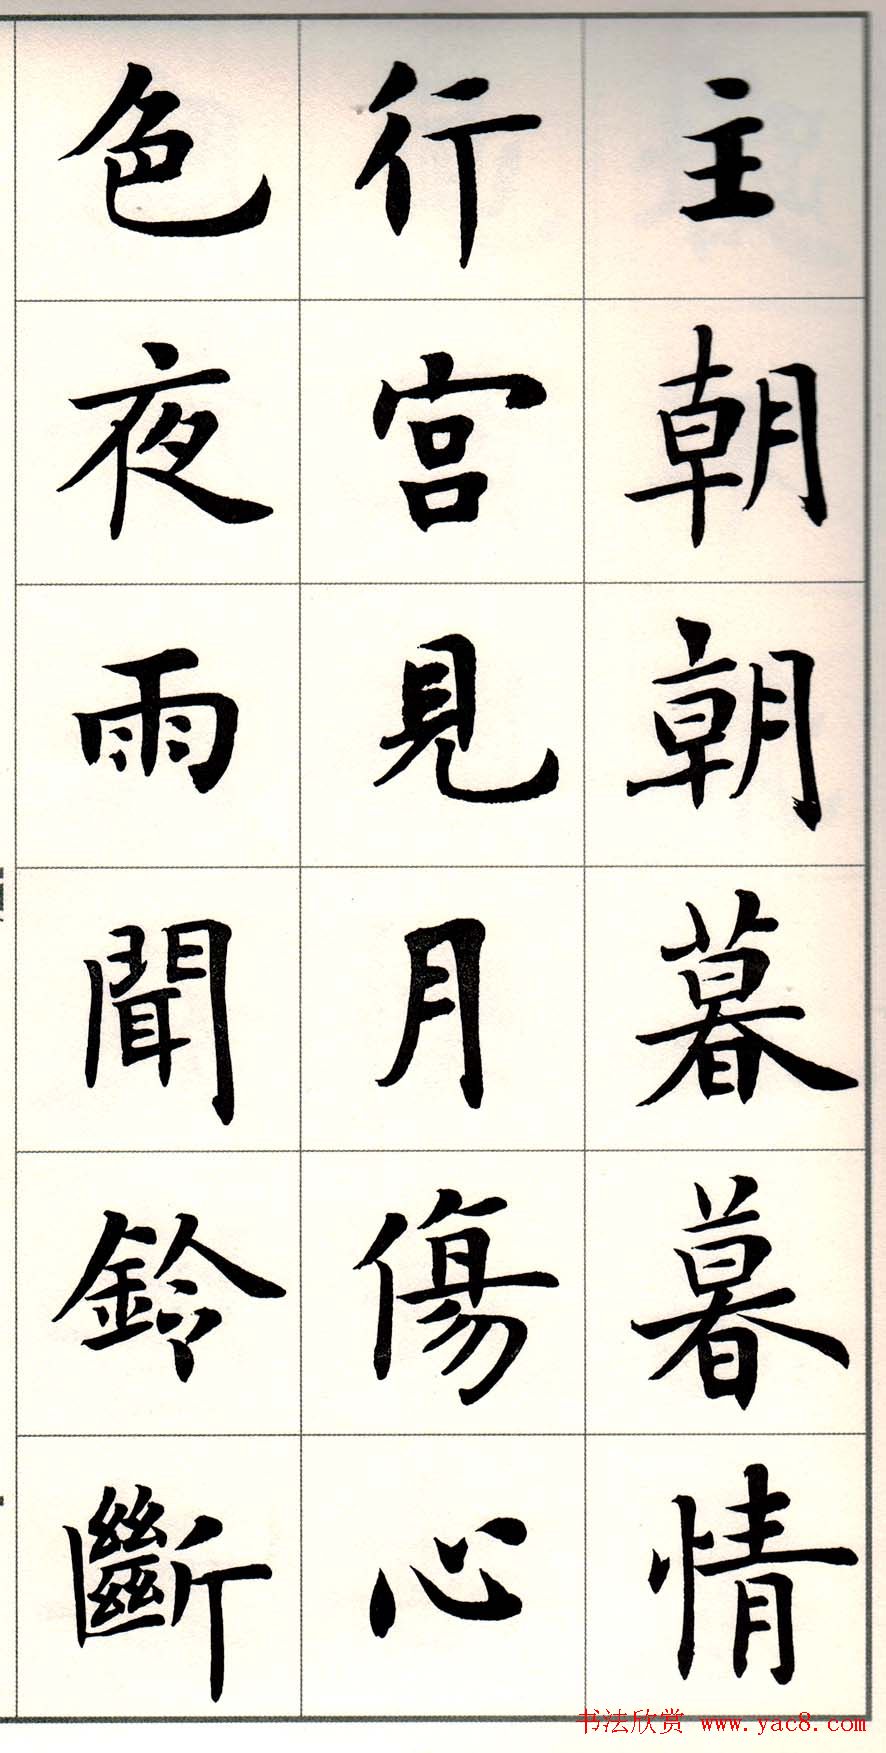 主朝朝暮暮情
行宫見月傷心
色夜雨聞鈴斷
书法欣赏 www.yac8.com